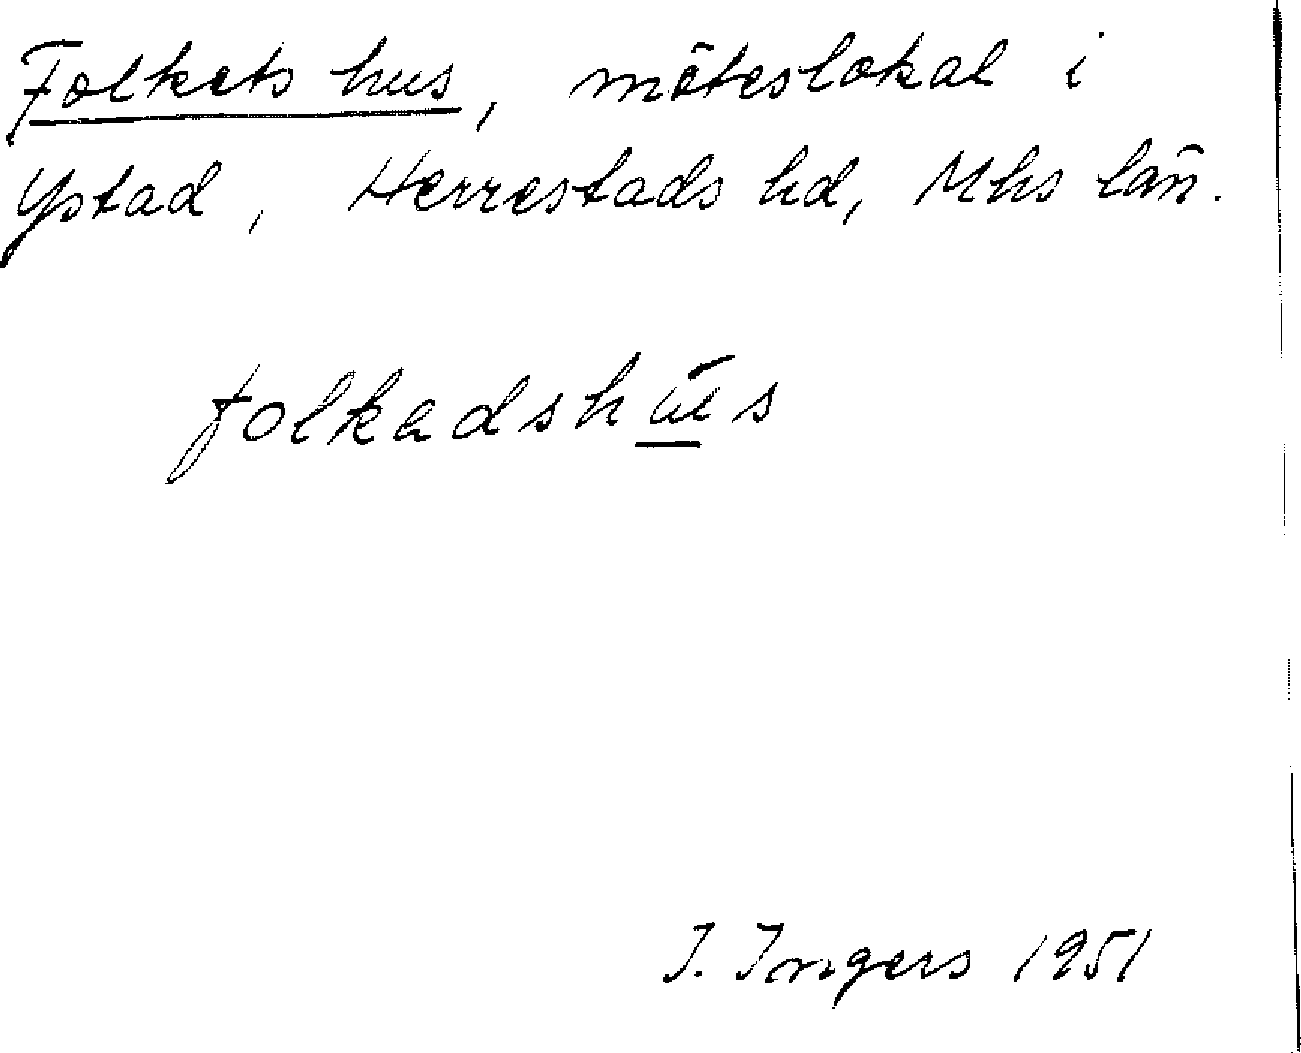 Folkets hus, möteslokal i
Ystad, Herrestads hd, Mhs län.
folkadshüs
I. Ingers 1951